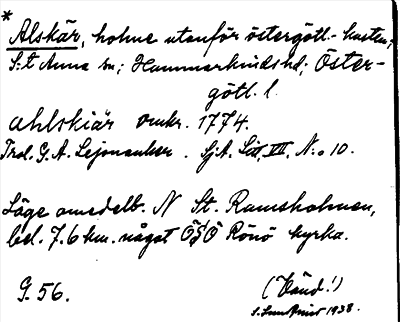 *
Alskär, holme utanför östergötl.-kusten;
S:t Anna sn; Hammarkinds hd; Öster-
götl. l.
ahlskiär omkr. 1774.
Trol. G. A. Lejonancker. Sj.A. Litt. VII. N:o 10.
Läge omedelb. N St. Ramsholmen,
bel. 7.6 km. något ÖSÖ Rönö kyrka.
G. 56.
(Vänd!)
1938.